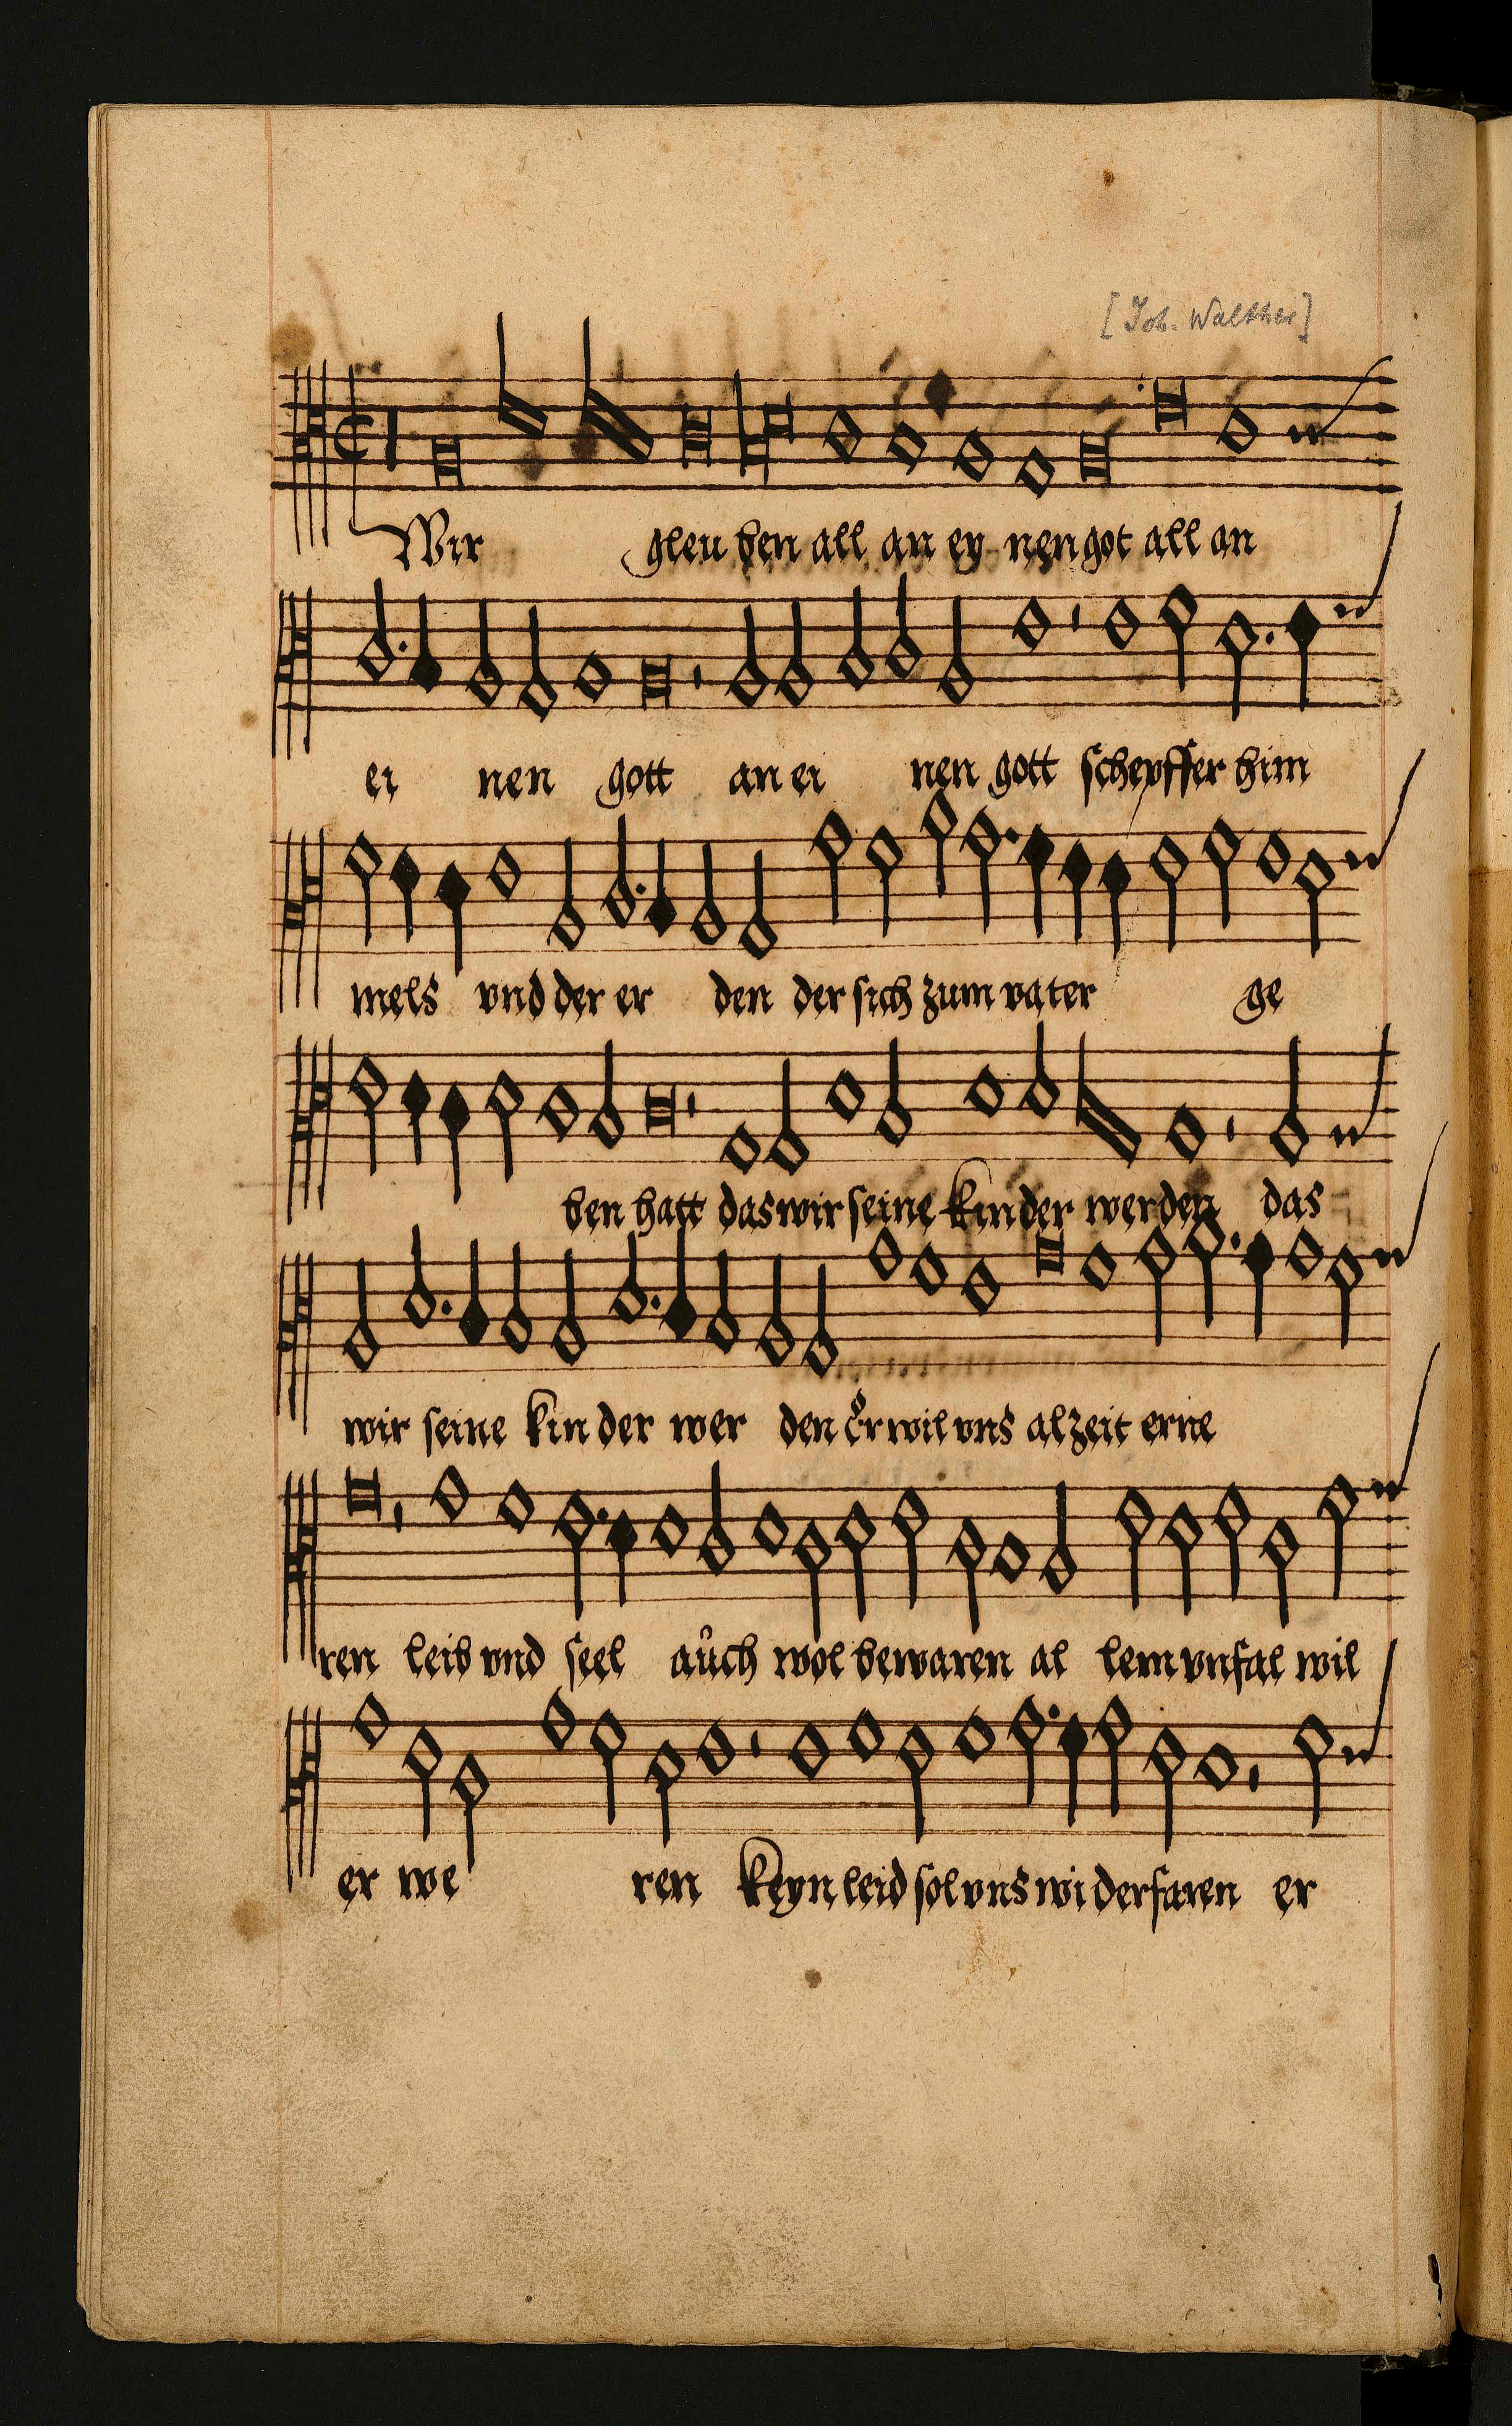 [Joh. Walther]
Wir gleu ben all an ey nen got all an
ei nen gott an ei nen gott schepffer him
mels vnd der er den der sich zum vater ge
ben hatt das wir seine kin der werden das
wir seine kin der wer den Er wil vns alzeit erne
ren leib vnd seel aůch wol bewaren al lem vnfal wil
er we ren keyn leid sol vns wi derfaren er